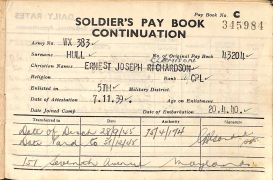 DAILY RATES
Pay Book No. C
345984
SOLDIER'S PAY BOOK
CONTINUATION
Army No. WX 383
Surname HULL No. of Original Pay Book 43204
Christian Name ERNEST JOSEPH RICHARDSON
Religion Rank CPL
Enlisted in 5TH Military District.
Date of Attestation 7.11.39. Age on Enlistment
Date Joined Camp Date of Embarkation 20.4.40
Transferred to Date Authority Signature
Date of Disch 28/9/45 75/4/174
Date 31/10/45
157 Seventh Avenue Maylands